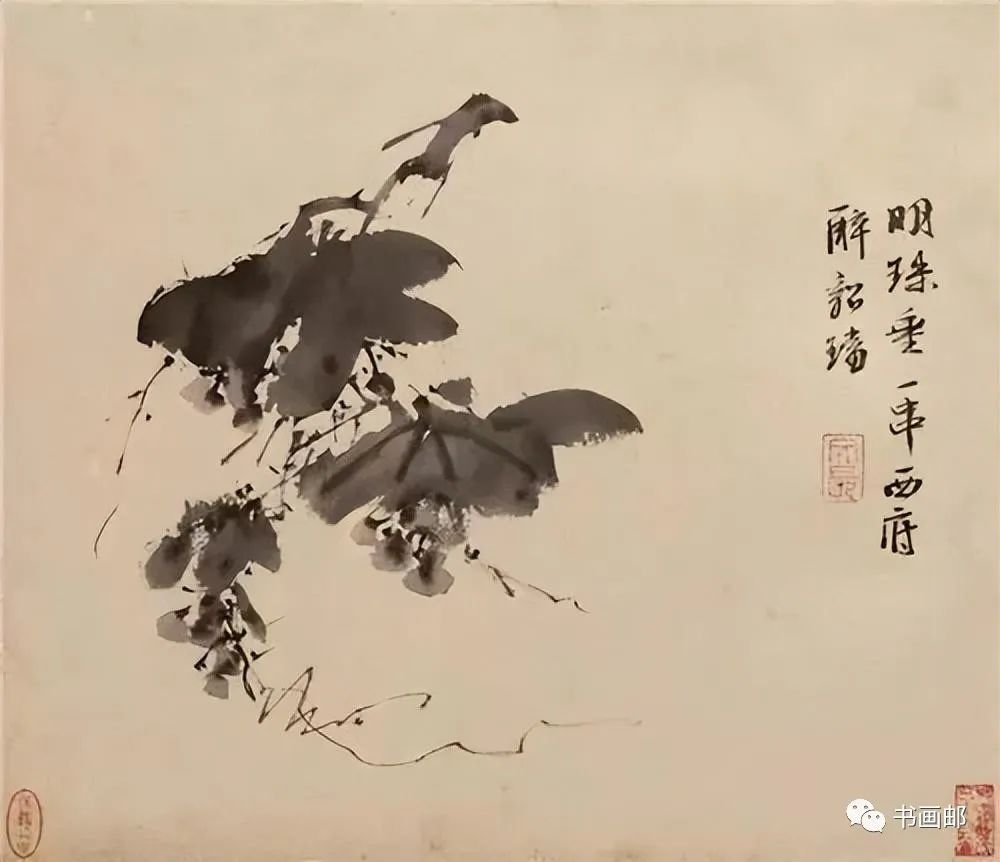 明珠垂一串西府
醉貂璫
书画邮